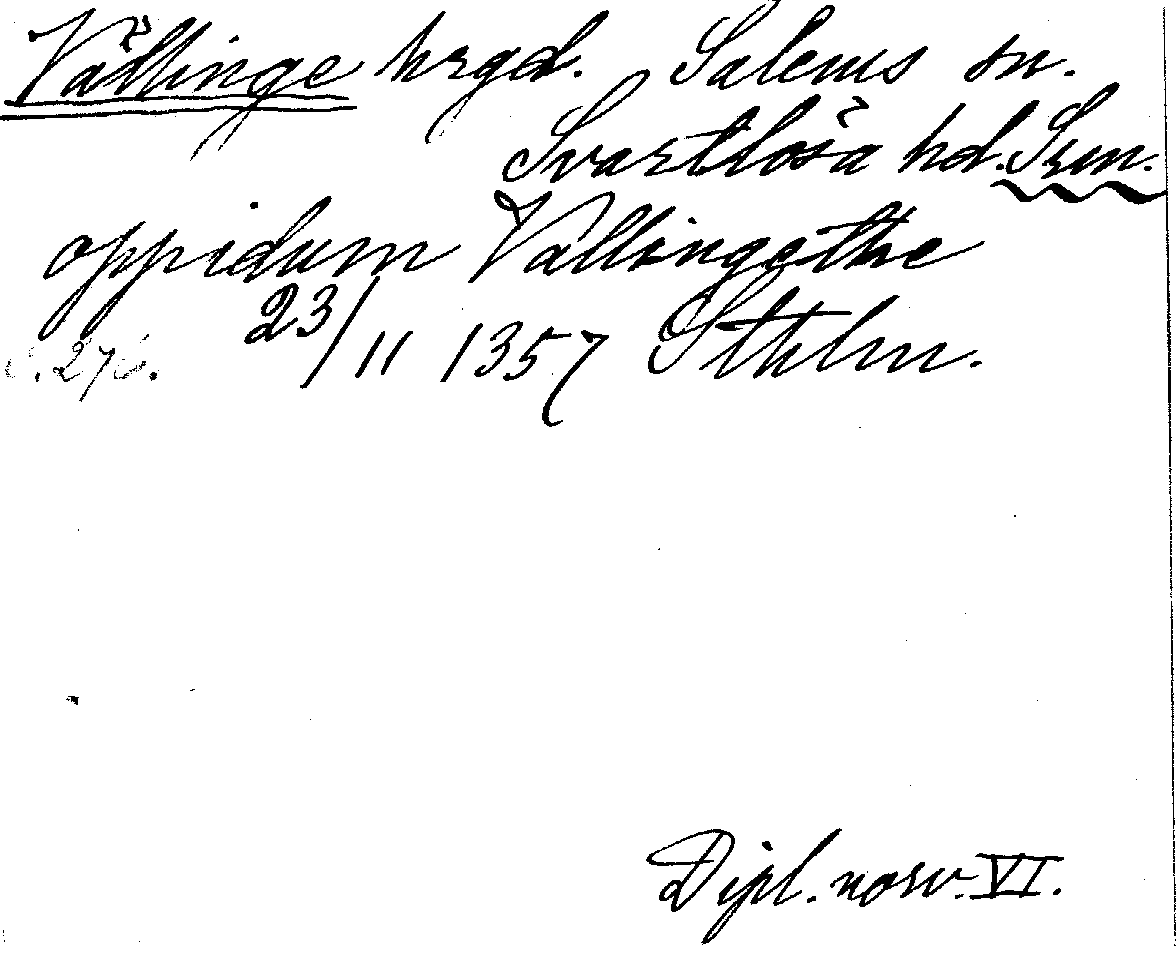 Vällinge hrgd. Salems sn.
Svartlösa hd. Srm.
oppidum Vallingøthe
23/11 1357 Sthlm.
Dipl. norv. VI.